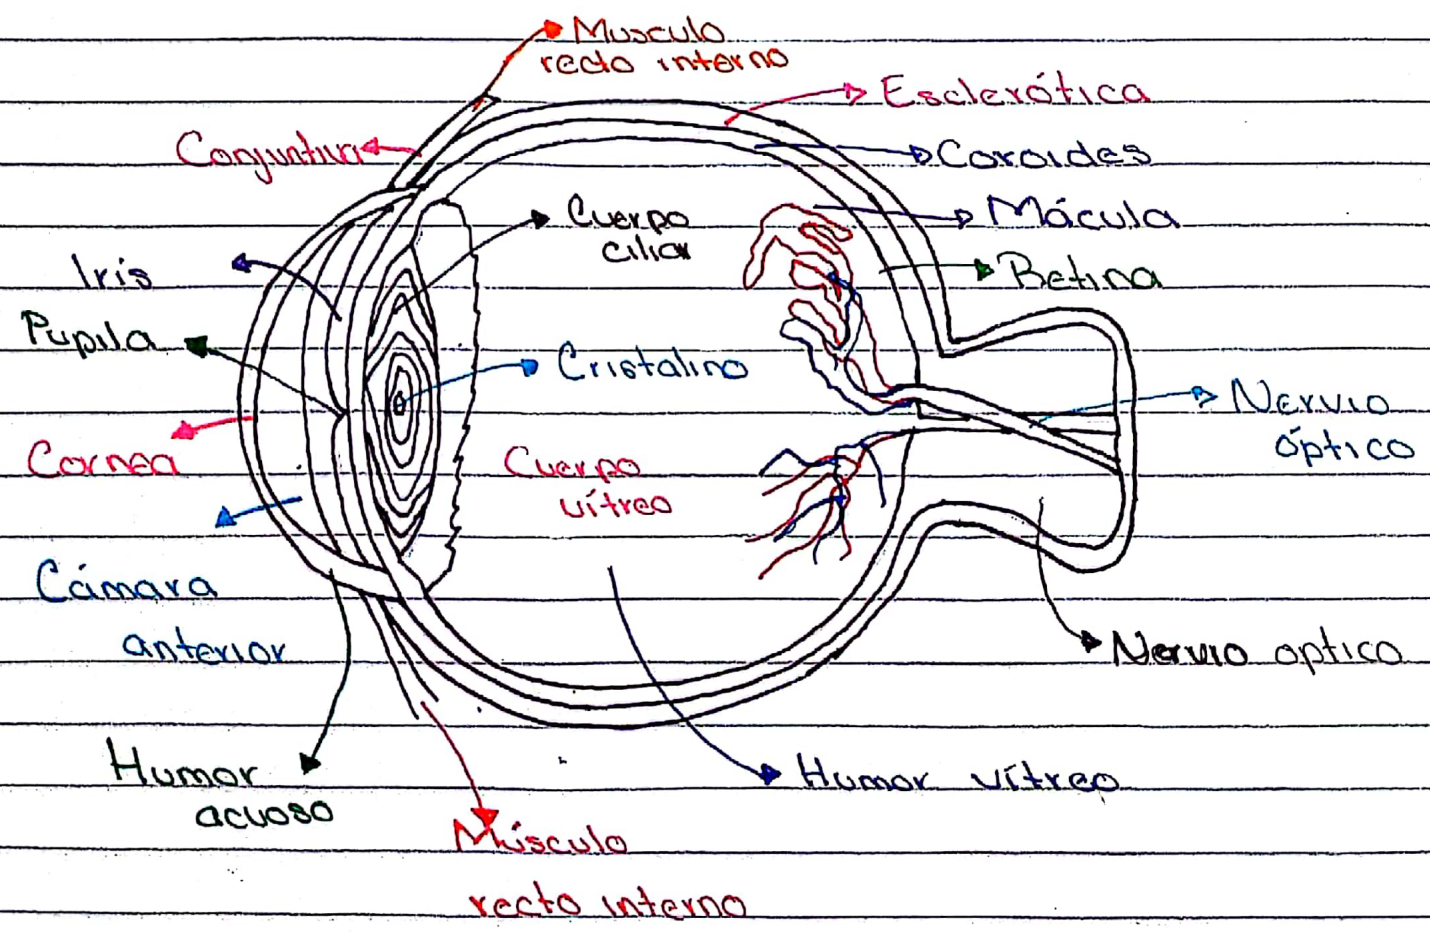 Musculo
recto interno
Esclerótica
Conjuntiva
Coroides
Cuerpo
ciliar
Mácula
Iris
Retina
Pupila
Cristalino
Nervio
óptico
Cornea
Cuerpo
vítreo
Cámara
anterior
Nervio optico
Humor
acuoso
Humor vítreo
Músculo
recto interno